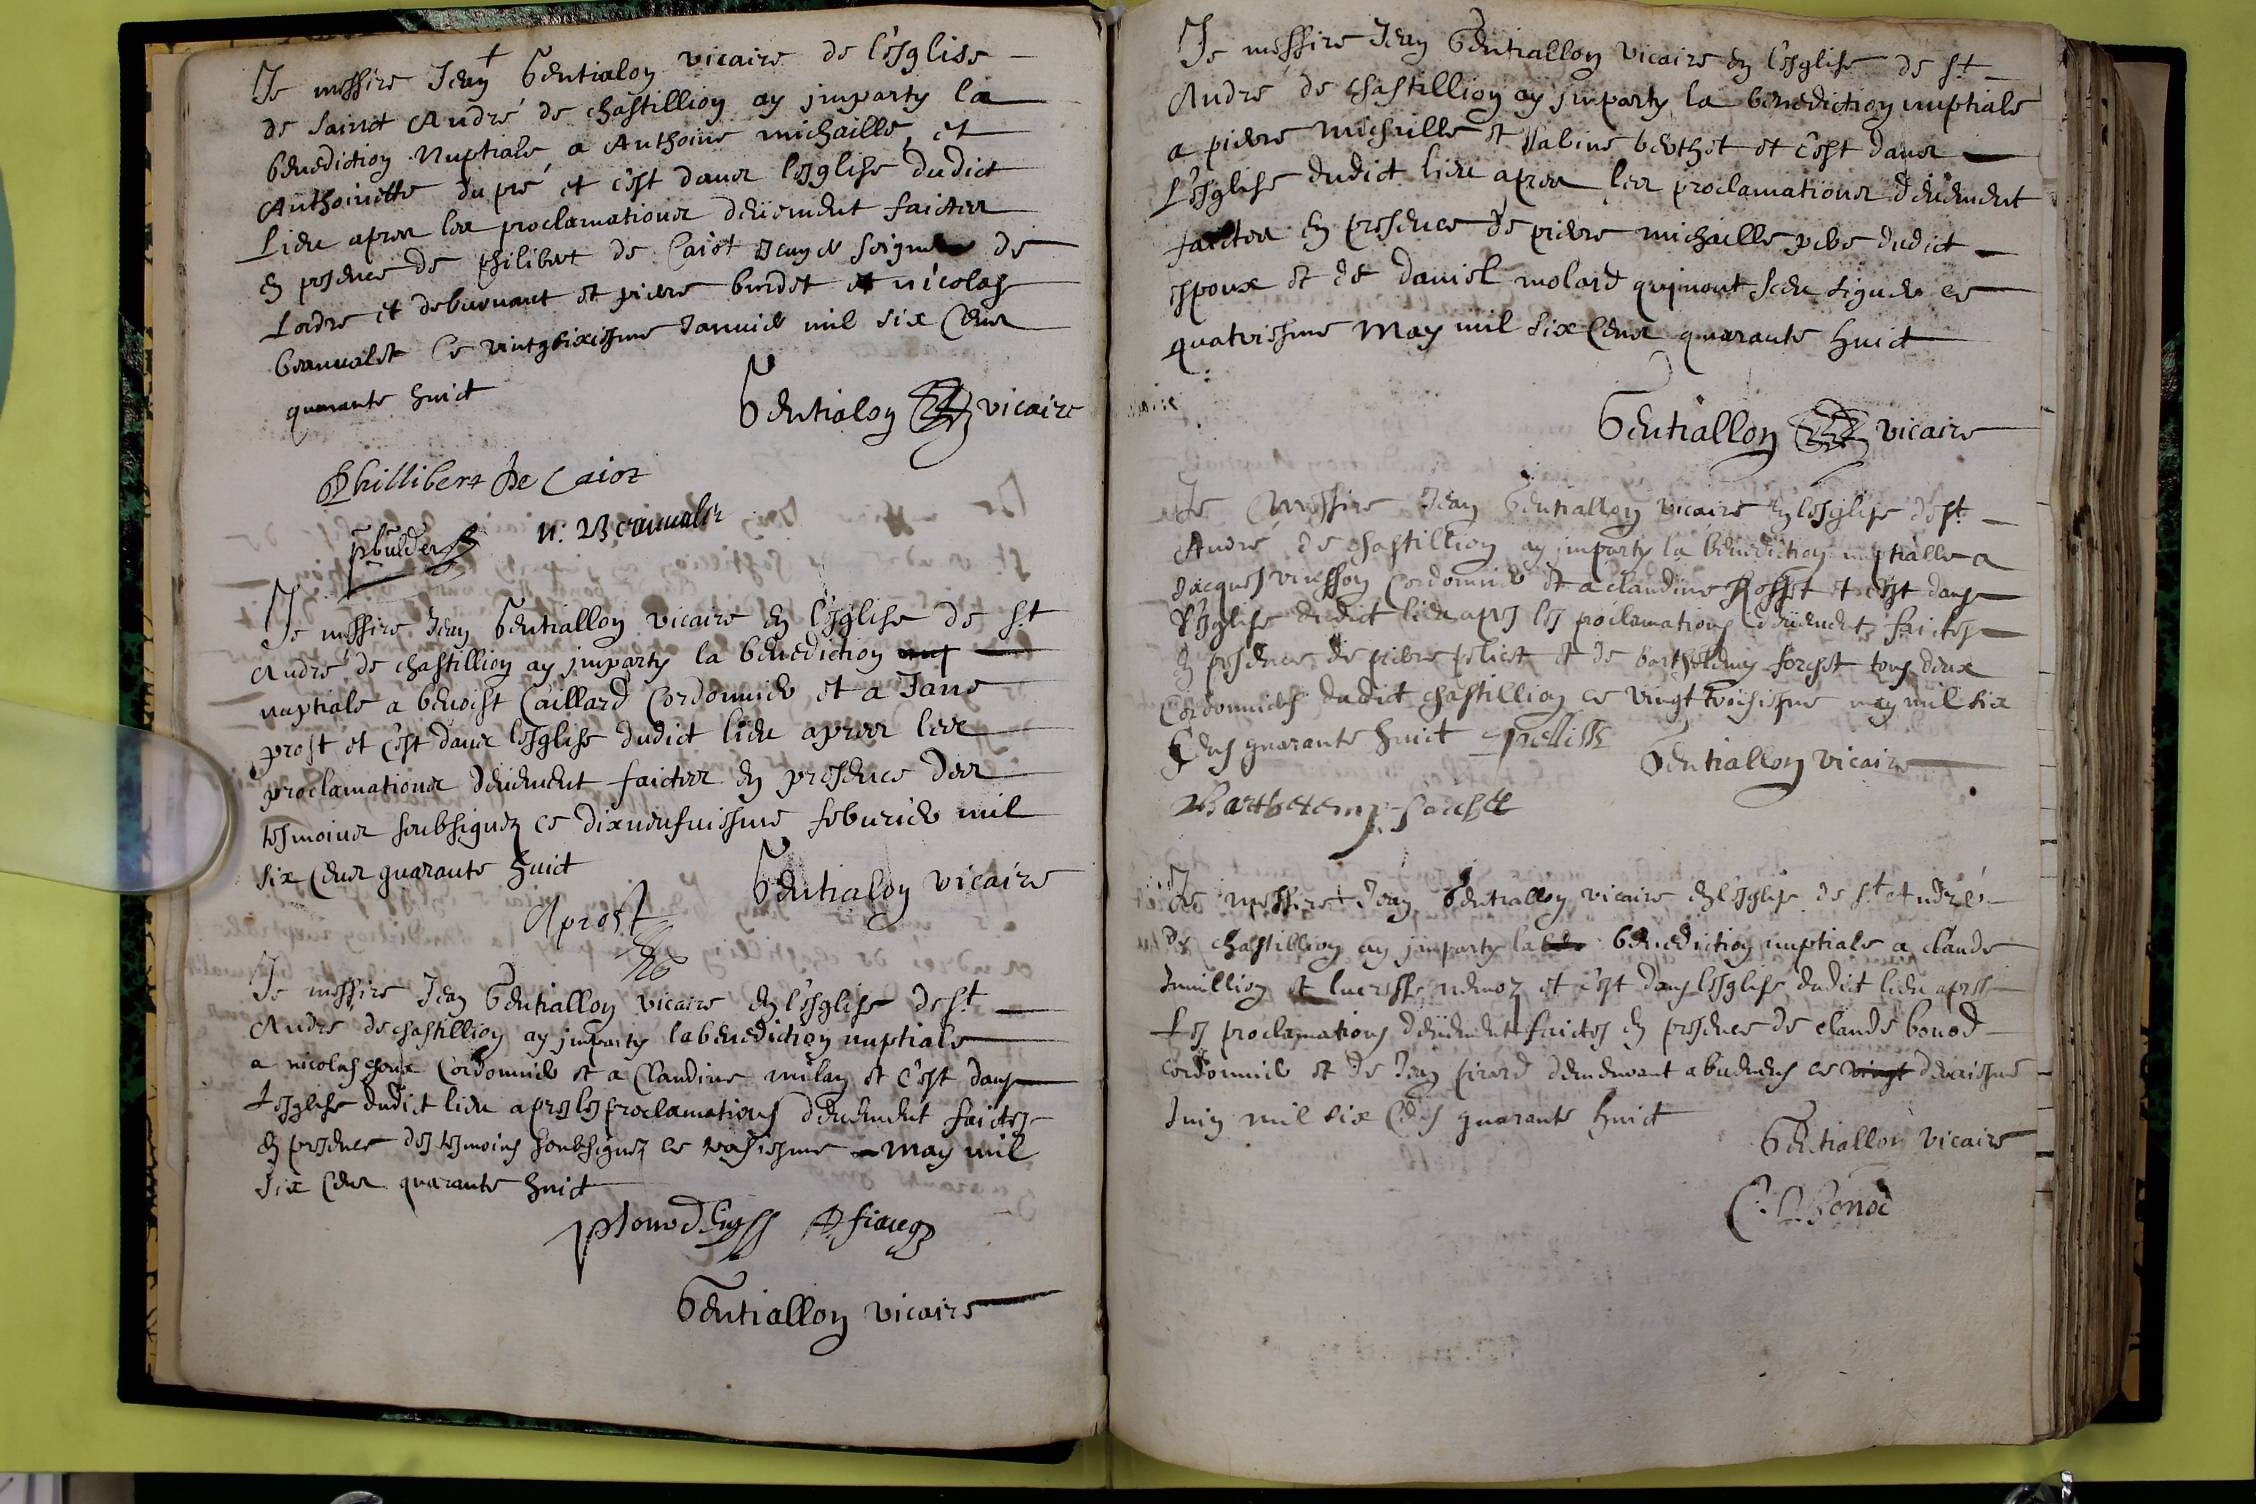 Je messire Jean Gentialon vicaire de l'esglise
de sainct André de chastillion ay imparty la
benediction Nuptiale a Anthoine michaille et
Anthoinette du pré et c'est dans lesglise dudict
Lieu apres les proclamations deüement faictes
En presence de philibert de Caiot seigneur de
Lordre et et pierre burdet et nicolas
ce vingtsixiesme Janvier mil six Cens
quarante huict
Gentialon vicaire
Phillibert De Caiot
pburdet N:
Je messire Jean Gentiallon vicaire en l'esglise de St
André de chastillion ay imparty la benediction
nuptiale a benoist Caillard Cordonnier et a Jane
prost et c'est dans lesglise dudict lieu apres les
proclamations deüement faictes en presence des
tesmoins soubsignez ce dixneufuiesme feburier mil
six Cens quarante huict
Gentialon vicaire
Aprost
Je messire Jean Gentiallon vicaire en l'esglise de St
André de chastillion ay imparty la benediction nuptiale
a nicolas Cordonnier et a Claudine milan et c'est dans
Lesglise dudict lieu apres les proclamations deüement faictes
En presence des tesmoins soubsignez ce troisiesme May mil
six Cens quarante huict
Gentiallon vicaire
Je messire Jean Gentiallon vicaire en l'esglise de St
André de chastillion ay imparty la benediction nuptiale
a pierre michaille et sabine berthet et c'est dans
L'esglise dudict lieu apres les proclamations deüement
faictes en presence de pierre michaille pere dudict
espoux et de Daniel molard qui nont sceu signer ce
quatriesme May mil six Cens quarante huict
Gentiallon vicaire
Je Messire Jean Gentiallon vicaire en lesglise de St
André de chastillion ay imparty la benediction nuptialle a
Jacques Cordonnier et a claudine Rosset et c'est dans
l'esglise dudict lieu apres les proclamations deüement faictes
En presence de pierre pelict et de barthelemy forest tous deux
Cordonniers dudict chastillion ce vingt troisiesme may mil six
Cens quarante huict
Gentiallon vicaire
Barthelemy
Je messire Jean Gentiallon vicaire en l'esglise de St André
de chastillion ay imparty la benediction nuptiale a claude
Jmillion et lucresse et c'est dans lesglise dudict lieu apres
Les proclamations deüement faictes en presence de claude bonod
cordonnier et de Jean girard demeurant a ce deuxiesme
Juin mil six Cens quarante huict
Gentiallon vicaire
C. Bonod